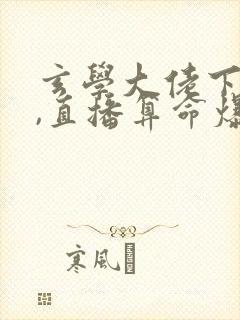 玄學大佬下
,直播算命爆
寒風